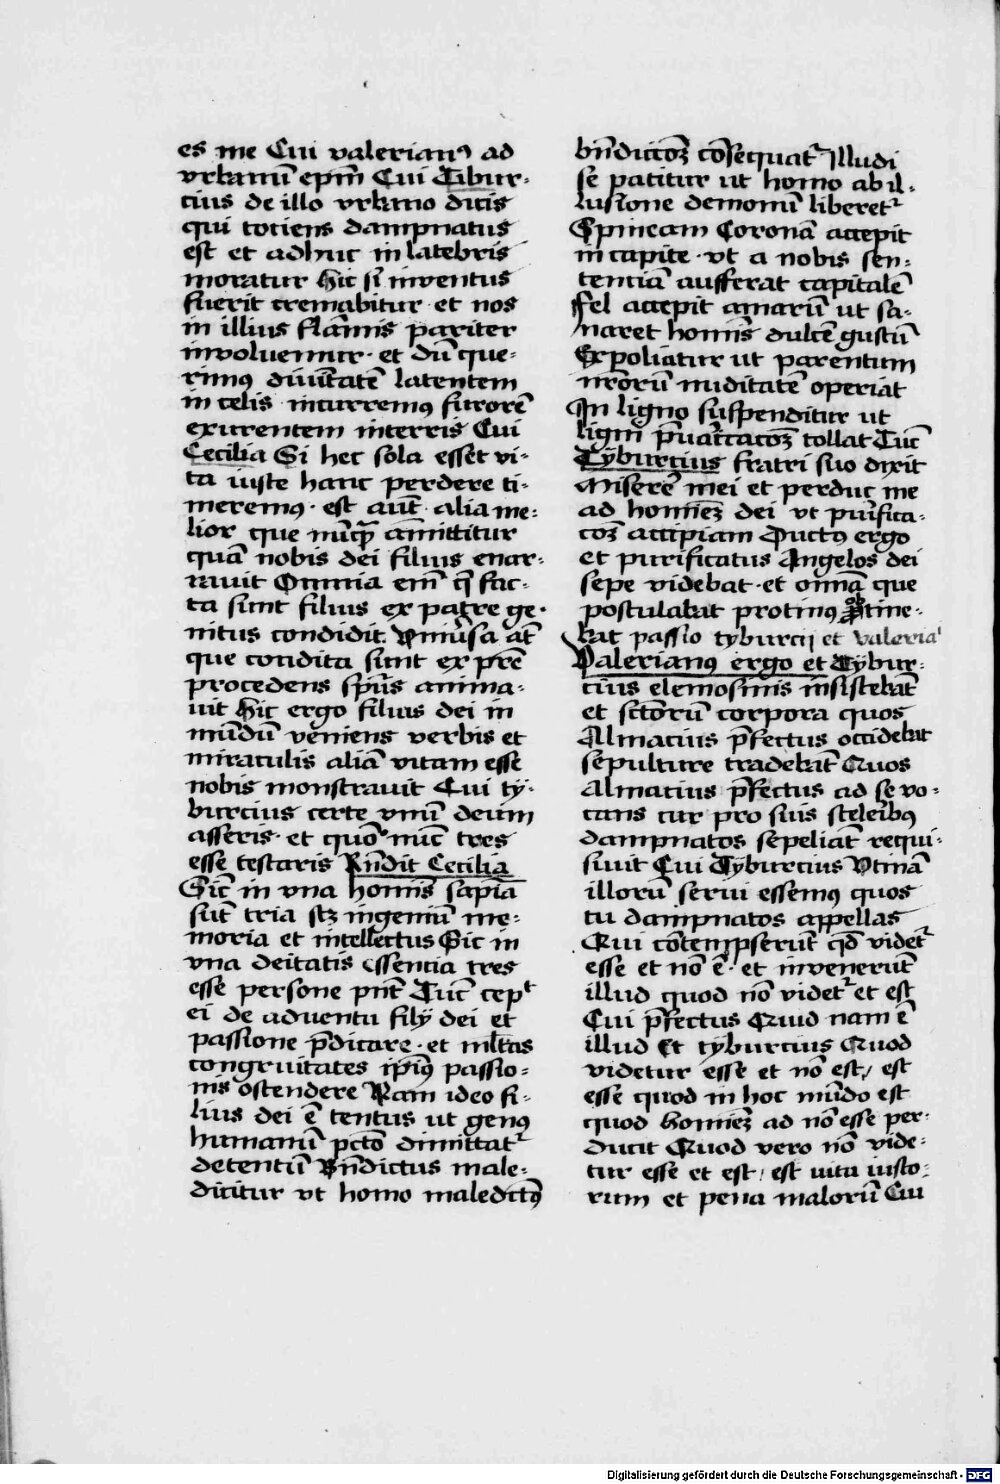 es me Cui valerianꝰ ad
vrbanū epm̄ Cui Tibur-
cius de illo vrbano dicis
qui totiens dampnatus
est et adhuc in latebris
moratur Hic si inventus
fuerit cremabitur · et nos
in illius flāmis pariter
involuemur · et dū que-
rimꝰ diuītatē latentem
in celis incurremꝰ furorē
exurentem in terris Cui
Cecilia Si hec sola esset vi-
ta iuste hanc perdere ti-
meremꝰ · est aut̄ · alia me-
lior que nūcꝗ̄ amittitur
quā nobis dei filius enar-
rauit Omnia em̄ q̄ fac-
ta sunt filius ex patre ge-
nitus condidit · Vniūsa at̄
que condita sunt ex pr̄e
procedens spūs anima-
uit Hic ergo filius dei in
mūdū veniens verbis et
miraculis aliā vitam esse
nobis monstrauit Cui ty-
burcius certe vnū deum
asseris · et quō nūc tres
esse testaris Rn̄dit Cecilia
Sic̄ in vna homīs sapiā
sūt tria scꝫ ingeniū me-
moria et intellectus Sic in
vna deitatis essentia tres
esse persone pn̄t Tūc cepᵗ
ei de aduentu filij dei et
passione p̄dicare · et ml̄tas
congruitates ipīꝰ passio-
nis ostendere Nam ideo fi-
lius dei ē tentus ut genꝰ
humanū pctō dimittatᷣ
detentū Bn̄dictus male-
dicitur vt homo maledictꝰ
bn̄dictōꝫ cōsequatᷣ Illudi
se patitur ut homo ab il-
lusione demonū liberetᷣ
Spineam Coronā accepit
in capite · vt a nobis sen-
tentiā aufferat capitalē
Fel accepit amarū ut sa-
naret homīs dulcē gustū
Expoliatur ut parentum
nrōrū nuditatē operiat
In ligno suspenditur ut
ligni p̄uaricacōꝫ tollat Tūc
Tyburcius fratri suo dixit
Miserē mei et perduc me
ad hominēꝫ dei vt purifica-
cōꝫ accipiam Ductꝰ ergo
et purificatus Angelos dei
sepe videbat · et omā que
postulabat protinꝰ obtine-
bat passio tyburcij et valeriaⁱ
Valerianꝰ ergo et Tybur-
cius elemosinis insistebāt
et sctōrū corpora quos
Almacius p̄fectus occidebat
sepulture tradebāt Quos
Almacius p̄fectus ad se vo-
cans cur pro suis sceleribꝰ
dampnatos sepeliāt requi-
siuit Cui Tyburcius Vtinā
illorū serui essemꝰ quos
tu dampnatos appellas
Qui cōtempserūt qd̄ videtᷣ
esse et nō ē · et invenerūt
illud quod nō videtᷣ et est
Cui p̄fectus Quid nam ē
illud Et tyburcius Quod
videtur esse et nō est / est
esse quod in hoc mūdo est
quod hominēꝫ ad nō esse per-
ducit Quod vero nō vide-
tur esse et est / est vita iusto-
rum et pena malorū Cui
Digitalisierung gefördert durch die Deutsche Forschungsgemeinschaft - DFG